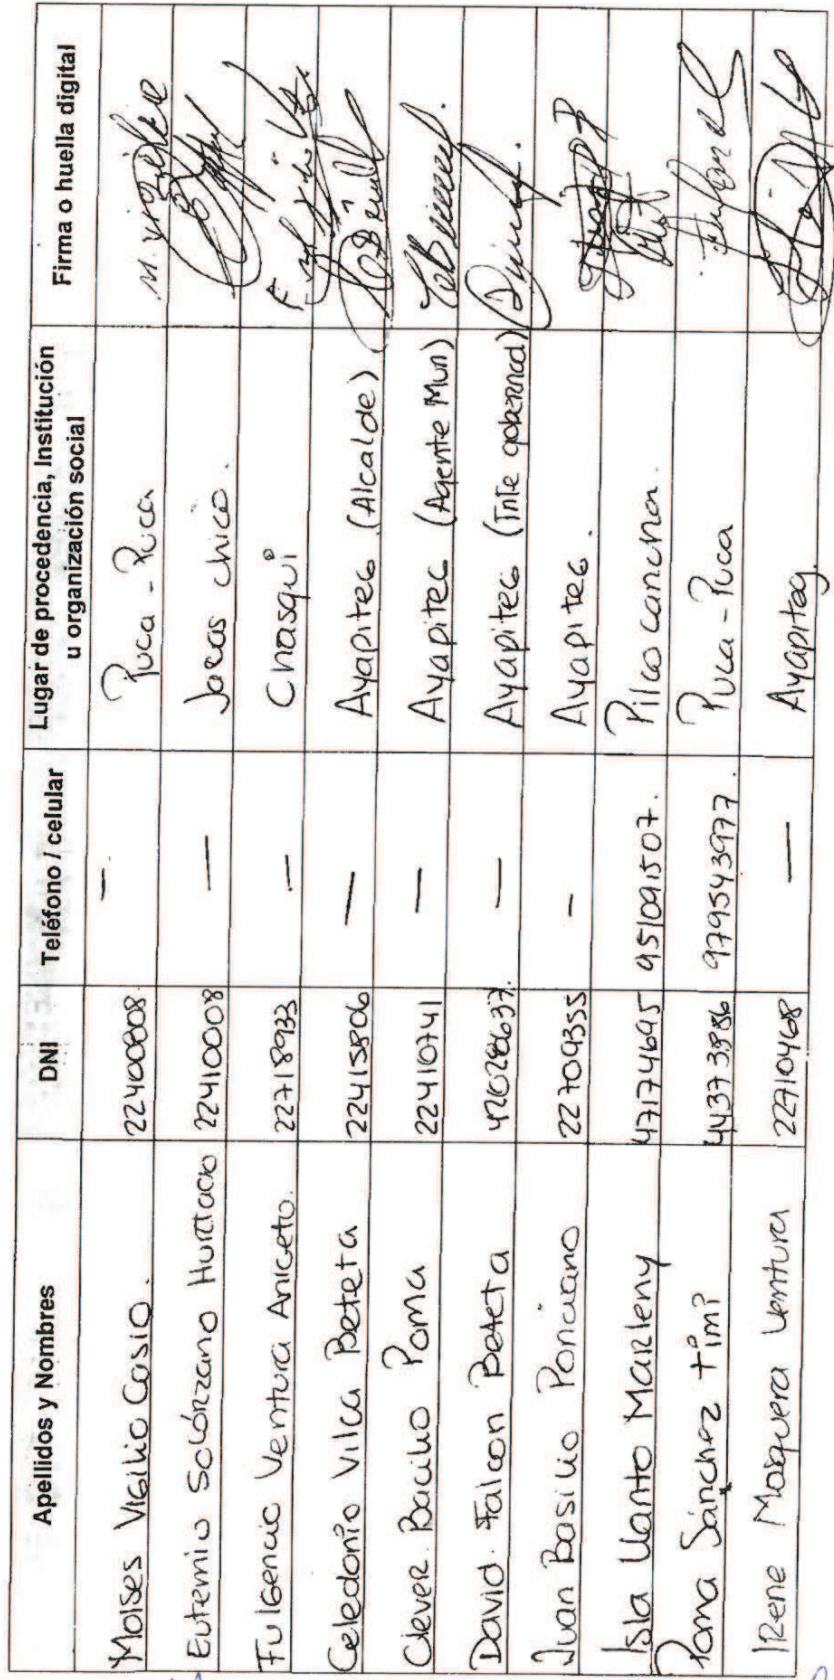 Apellidos y Nombres DNI Teléfono / celular Lugar de procedencia, Institución u organización social Firma o huella digital
Moises Vigilio Cosio. 22400808 — Puca - Puca M. Vigilio
Eutemio Solórzano Hurtado 22410008 — Jacas chico.
Fulgencio Ventura Aniceto. 22718933 — Chasqui
Celedonio Vilca Beteta 22415806 — Ayapitec (Alcalde)
Clever Bacilio Poma 22410741 — Ayapitec (Agente Mun)
David Falcon Beteta 42628637. — Ayapitec (Tnte gobernad)
Juan Basilio Ponciano 22709355 — Ayapitec.
Isla Llanto Marleny 47174695 951091507. Pilcocancha.
Poma Sánchez Timi 44373886 979543977. Puca - Puca
Irene Mosquera Ventura 22710468 — Ayapiteg.